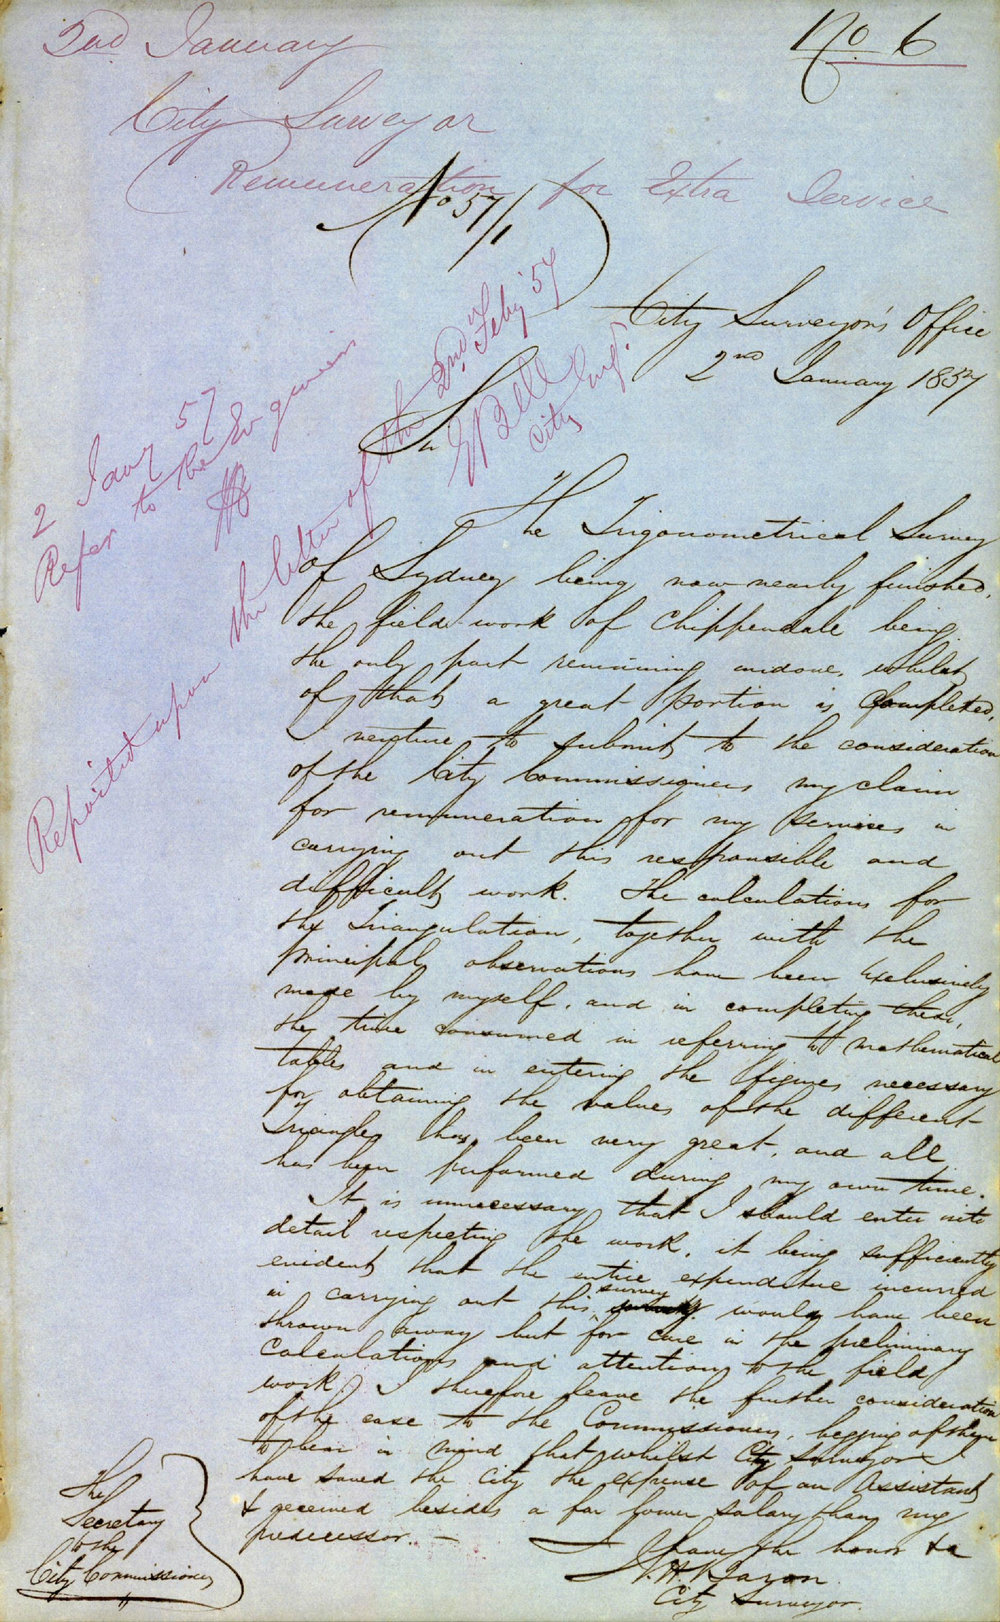 2nd January
No. 6
City Surveyor
Remuneration for Extra Service
No 57/1
City Surveyor's Office
2nd January 1857
2 Jany 57
Refer to the Engineer
Reported upon the letter of the 2nd Feby 57
E Bell
City Engr.
Sir
The Trigonometrical Survey
of Sydney being now nearly finished,
the field-work of Chippendale being
the only part remaining undone, whilst
of that a great portion is Completed,
I venture to submit to the consideration
of the City Commissioners my claim
for remuneration for my services in
carrying out this responsible and
difficult work. The calculations for
the Triangulation, together with the
principal observations have been exclusively
made by myself, and in completing them,
the time consumed in referring to mathematical
tables and in entering the figures necessary
for obtaining the values of the different
Triangles has been very great, and all
has been performed during my own time.
It is unnecessary that I should enter into
detail respecting the work, it being sufficiently
evident that the entire expenditure incurred
in carrying out this survey would have been
thrown away but for care in the preliminary
Calculations and attention to the field
work. I therefore leave the further consideration
of the case to the Commissioners, begging of them
to bear in mind that whilst City Surveyor I
have saved the City the expense of an Assistant
& received besides a far lower salary than my
predecessor. —
I have the honor &c
City Surveyor.
The
Secretary
to the
City Commissioners